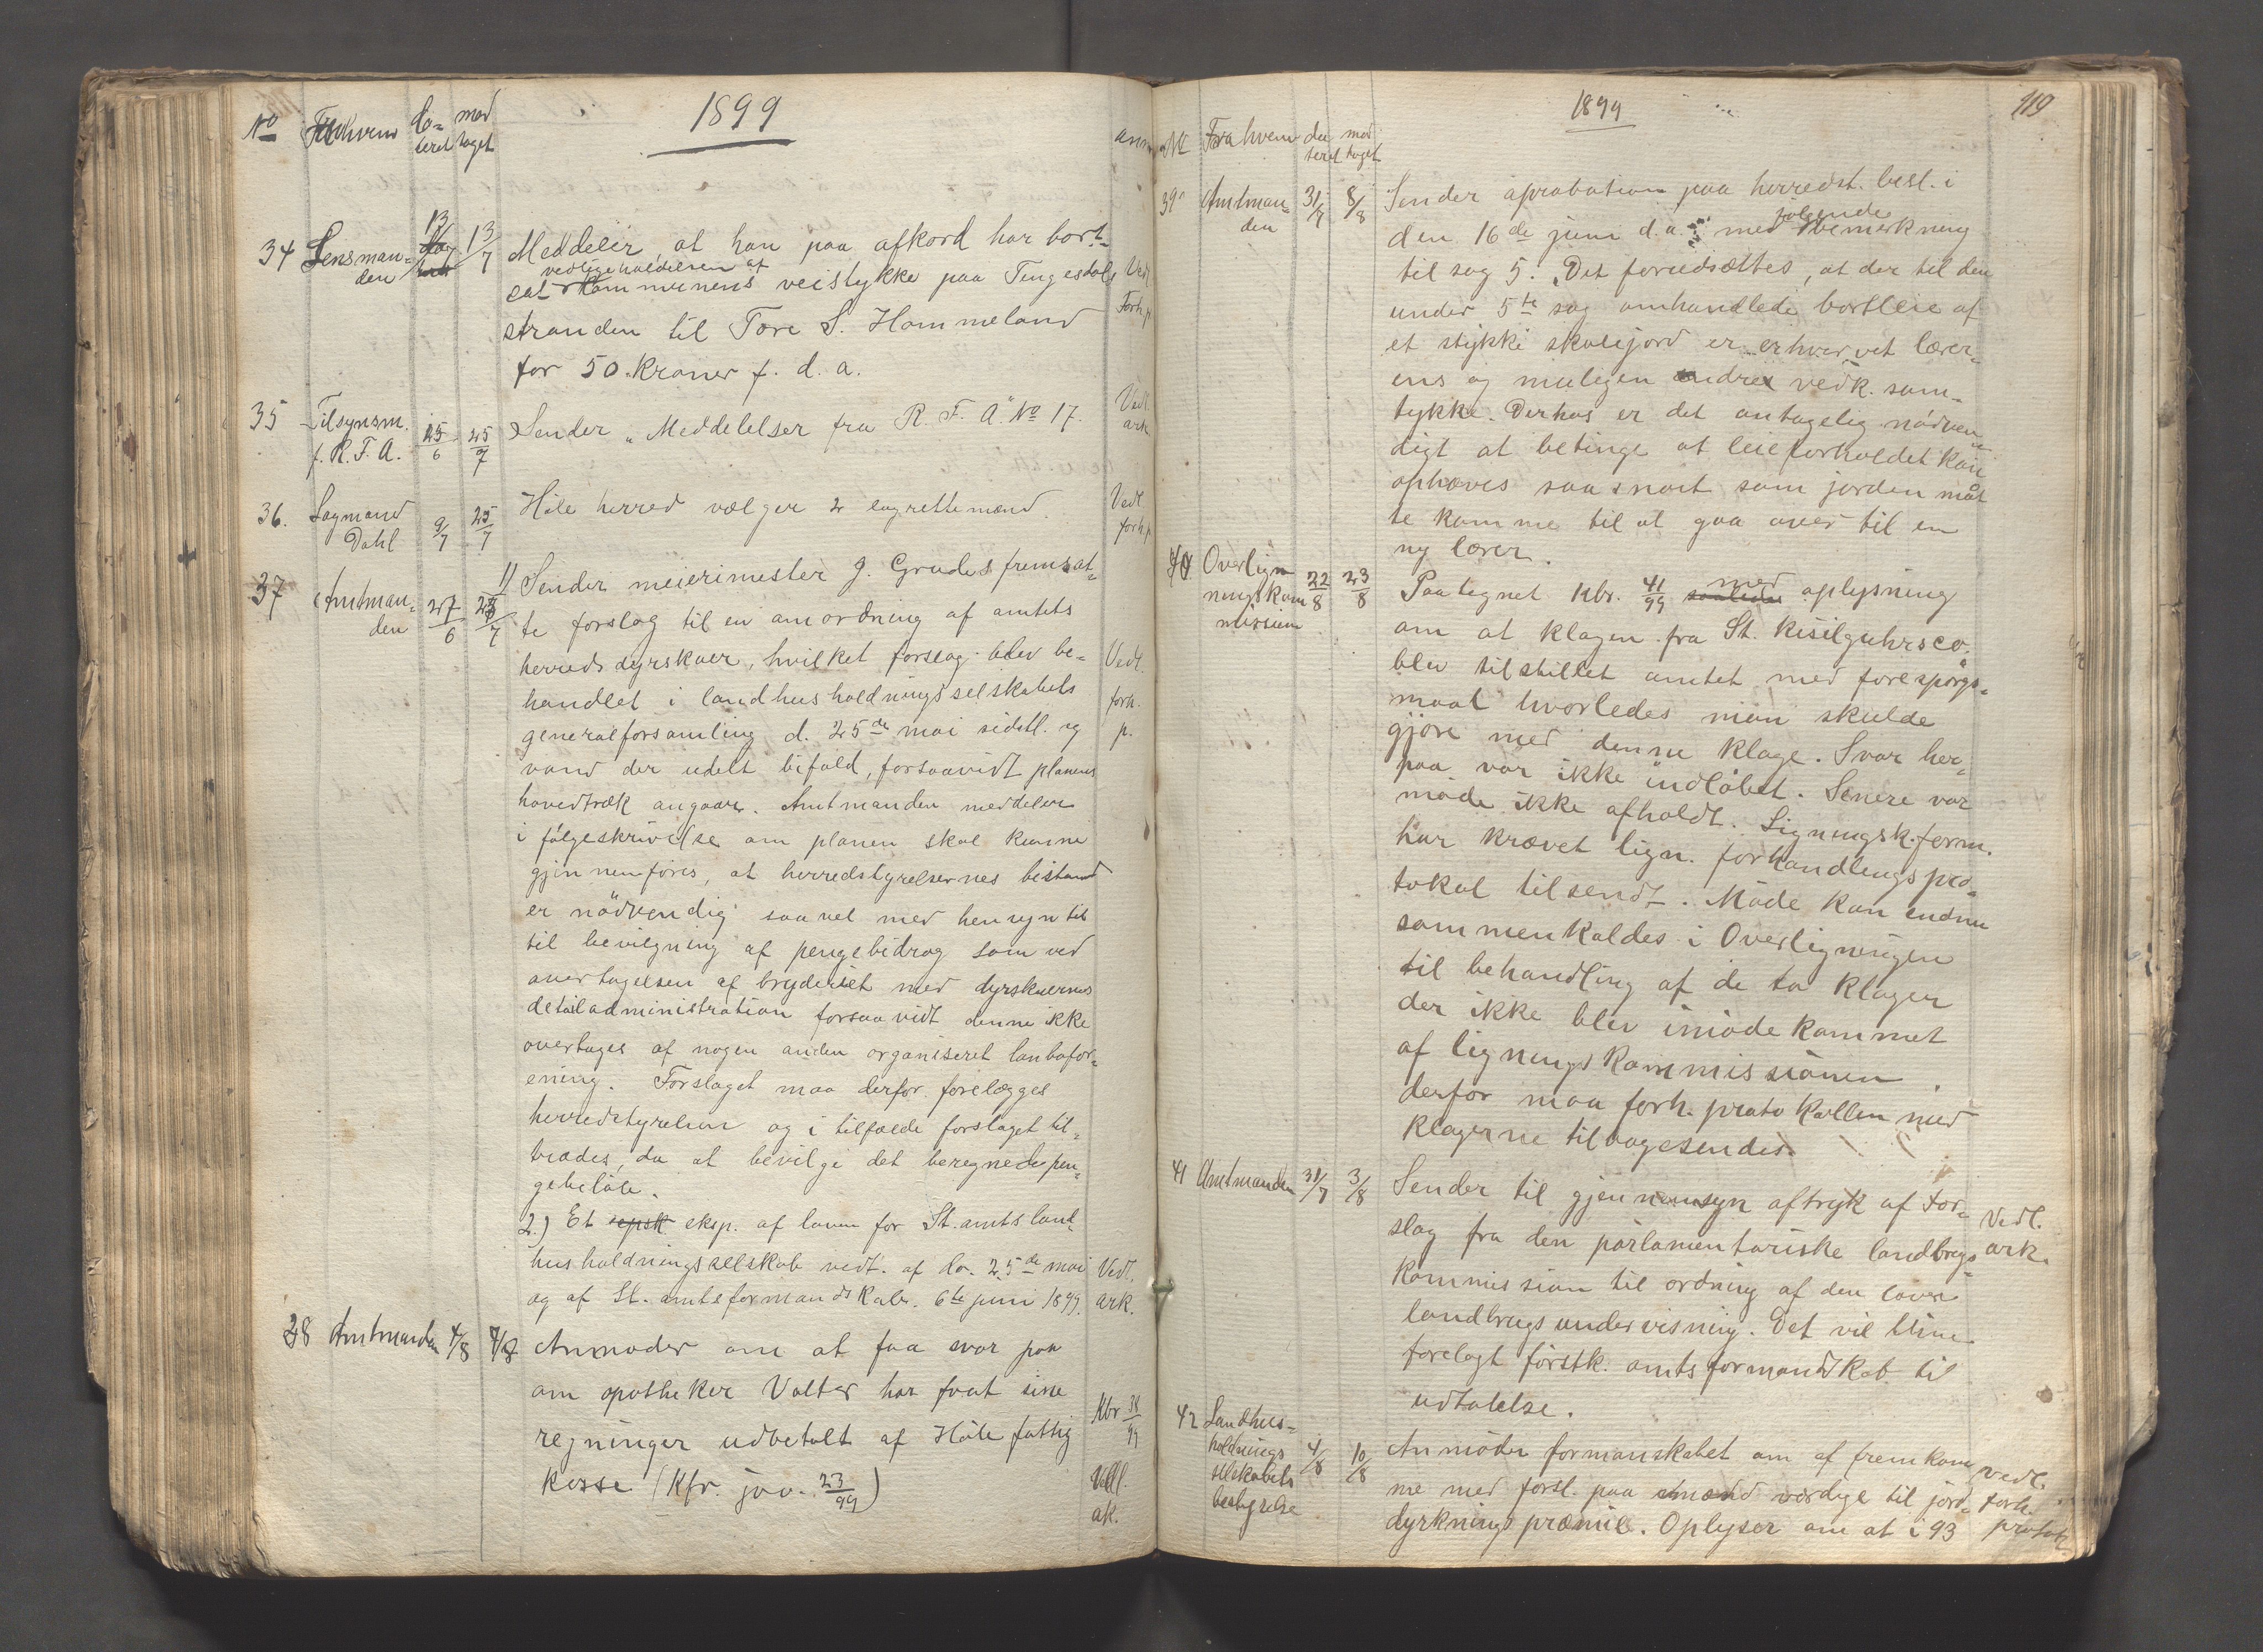 1899
No Fra hvem da- mod
teret taget anm
34 Lensman- 13/7 13/7 Meddeler at han paa afkord har bort-
den vedligeholdelsen af
sat kommunens veistykke paa Tengesdals Vedl.
stranden til Tore S. Hommeland Forh.p.
for 50 kroner f. d. a.
35 Tilsynsm. 25/6 25/7 Sender "Meddelelser fra R. F. A." No 17. Vedl.
f. R. F. A. ark
36. Lagmand 9/7 25/7 Håle herred vælger 2 lagrettemænd. Vedl
Dahl forh.p
37 Amtman- 27/6 25/7 1) Sender meierimester J. Grudes fremsat-
den te forslag til en anordning af amtets
herreds dyrskuer, hvilket forslag blev be- Vedl.
handlet i landhusholdningsselskabets forh.
generalforsamling d. 25de mai sidstl. og p.
vand der udelt bifald, forsaavidt planens
hovedtræk angaar. Amtmanden meddeler
i følgeskrivelse om planen skal kunne
gjennemføres, at herredstyrelsernes bistand
er nødvendig saavel med hensyn til
til bevilgning af pengebidrag som ved
overtagelsen af bryderiet med dyrskuernes
detailadministration forsaavidt denne ikke
overtages af nogen anden organiseret lanbofor-
ening. Forslaget maa derfor forelægges
herredstyrelsen og i tilfælde forslaget til-
trædes, da at bevilge det beregnede pen-
gebeløb.
2.) Et eksp. af loven for St. amts land-
husholdningsselskab vedt. af do. 25de mai Vedl.
og af St. amtsformandskab. 6te juni 1899. ark.
38 Amtmanden 4/8 7/8 Anmoder om at faa svar paa
om apotheker Valter har faat sine
regninger udbetalt af Håle fattig Kbr 38/99
kasse (Kfr. jour. 23/99) Vedl.
ak.
1899 119
No Fra hvem da mod
teret taget
39 Amtman- 31/7 8/8 Sender aprobation paa herredst. besl. i
den følgende
den 16de juni d. a. med bemerkning
til sag 5. "Det forudsættes, at der til den
under 5te sag omhandlede bortleie af
et stykke skolejord er erhvervet lærer-
ens og muligen andres vedk. sam-
tykke. Derhos er det antagelig nødven-
digt at betinge at leieforholdet kan
ophæves saa snart som jorden måt
te komme til at gaa over til en
ny lærer.
40 Overlign 22/8 23/8 Paategnet kbr. 41/99 med oplysning
ningskom
mission om at klagen fra St. Kisilguhrsco.
blev tilstillet amtet med forespørgs-
maal hvorledes man skulde
gjøre med denne klage. Svar her-
paa var ikke indløbet. Senere var
møde ikke afholdt. Ligningsk.form.
har krævet lign. forhandlingspro-
tokol tilsendt. Møde kan endnu
sammenkaldes i Overligningen
til behandling af de to klager
der ikke blev imødekommet
af ligningskommissionen.
derfor maa forh. protokollen med
klagerne tilbagesendes.
41 Amtmanden 31/7 3/8 Sender til gjennemsyn aftryk af for- Vedl.
slag fra den parlamentariske landbrugs ark.
kommission til ordning af den lavere
landbrugsundervisning. Det vil blive
forelagt førstk. amtsformandskab til
udtalelse.
42 Landhus- 4/8 10/8 Anmoder formanskabet om af fremkom vedl.
holdnings
selskabets me med forsl. paa mænd værdige til jord- forh.
bestyrelse dyrkningspræmie. Oplyser om at i 93 protok.